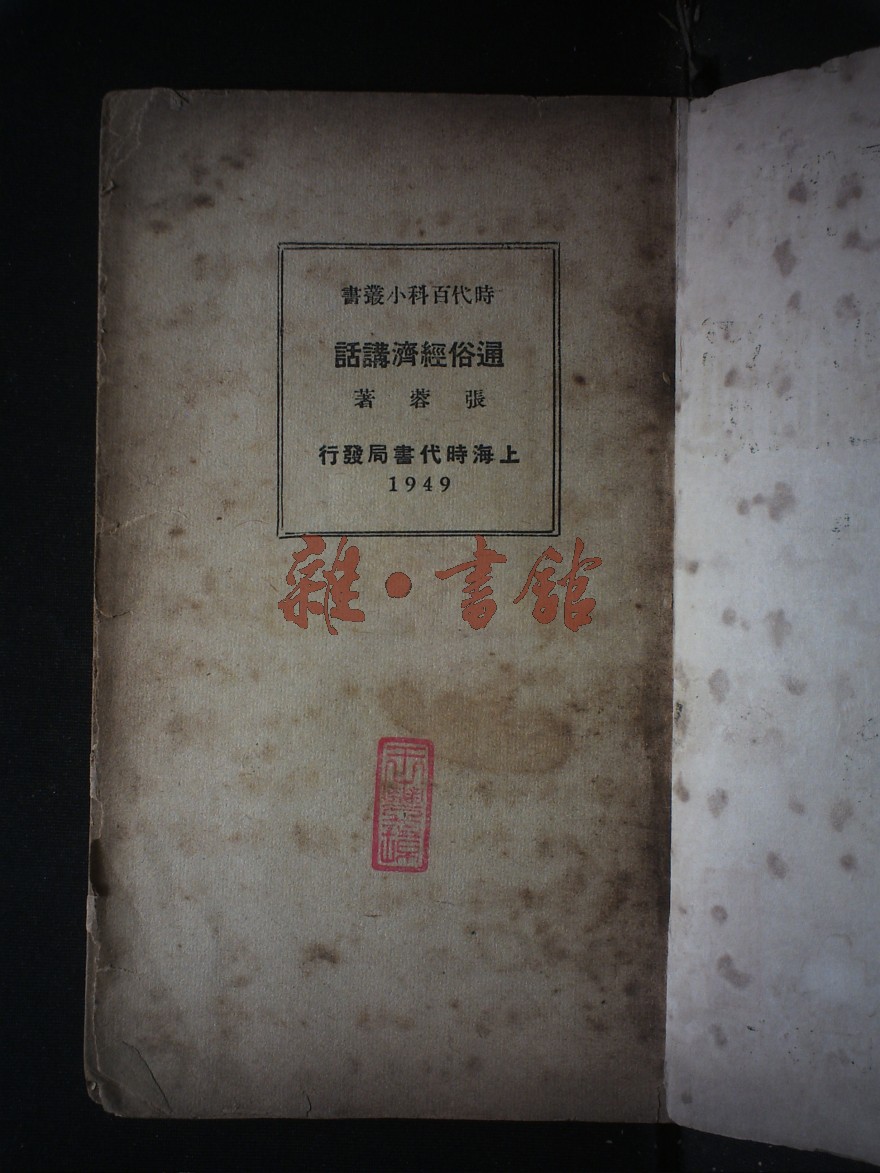 時代百科小叢書
通俗經濟講話
張蓉著
上海時代書局發行
1949
雜·書館